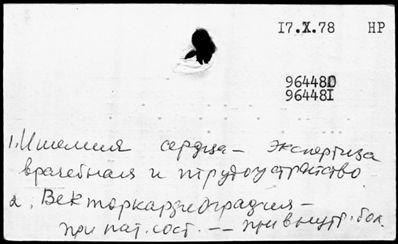 17.X.78 HP
964480
964481
1. Ишемия сердца – экспертиза
врачебная и трудоустройство
2. Векторкардиография –
при пат. сост. -- при внутр. бол.